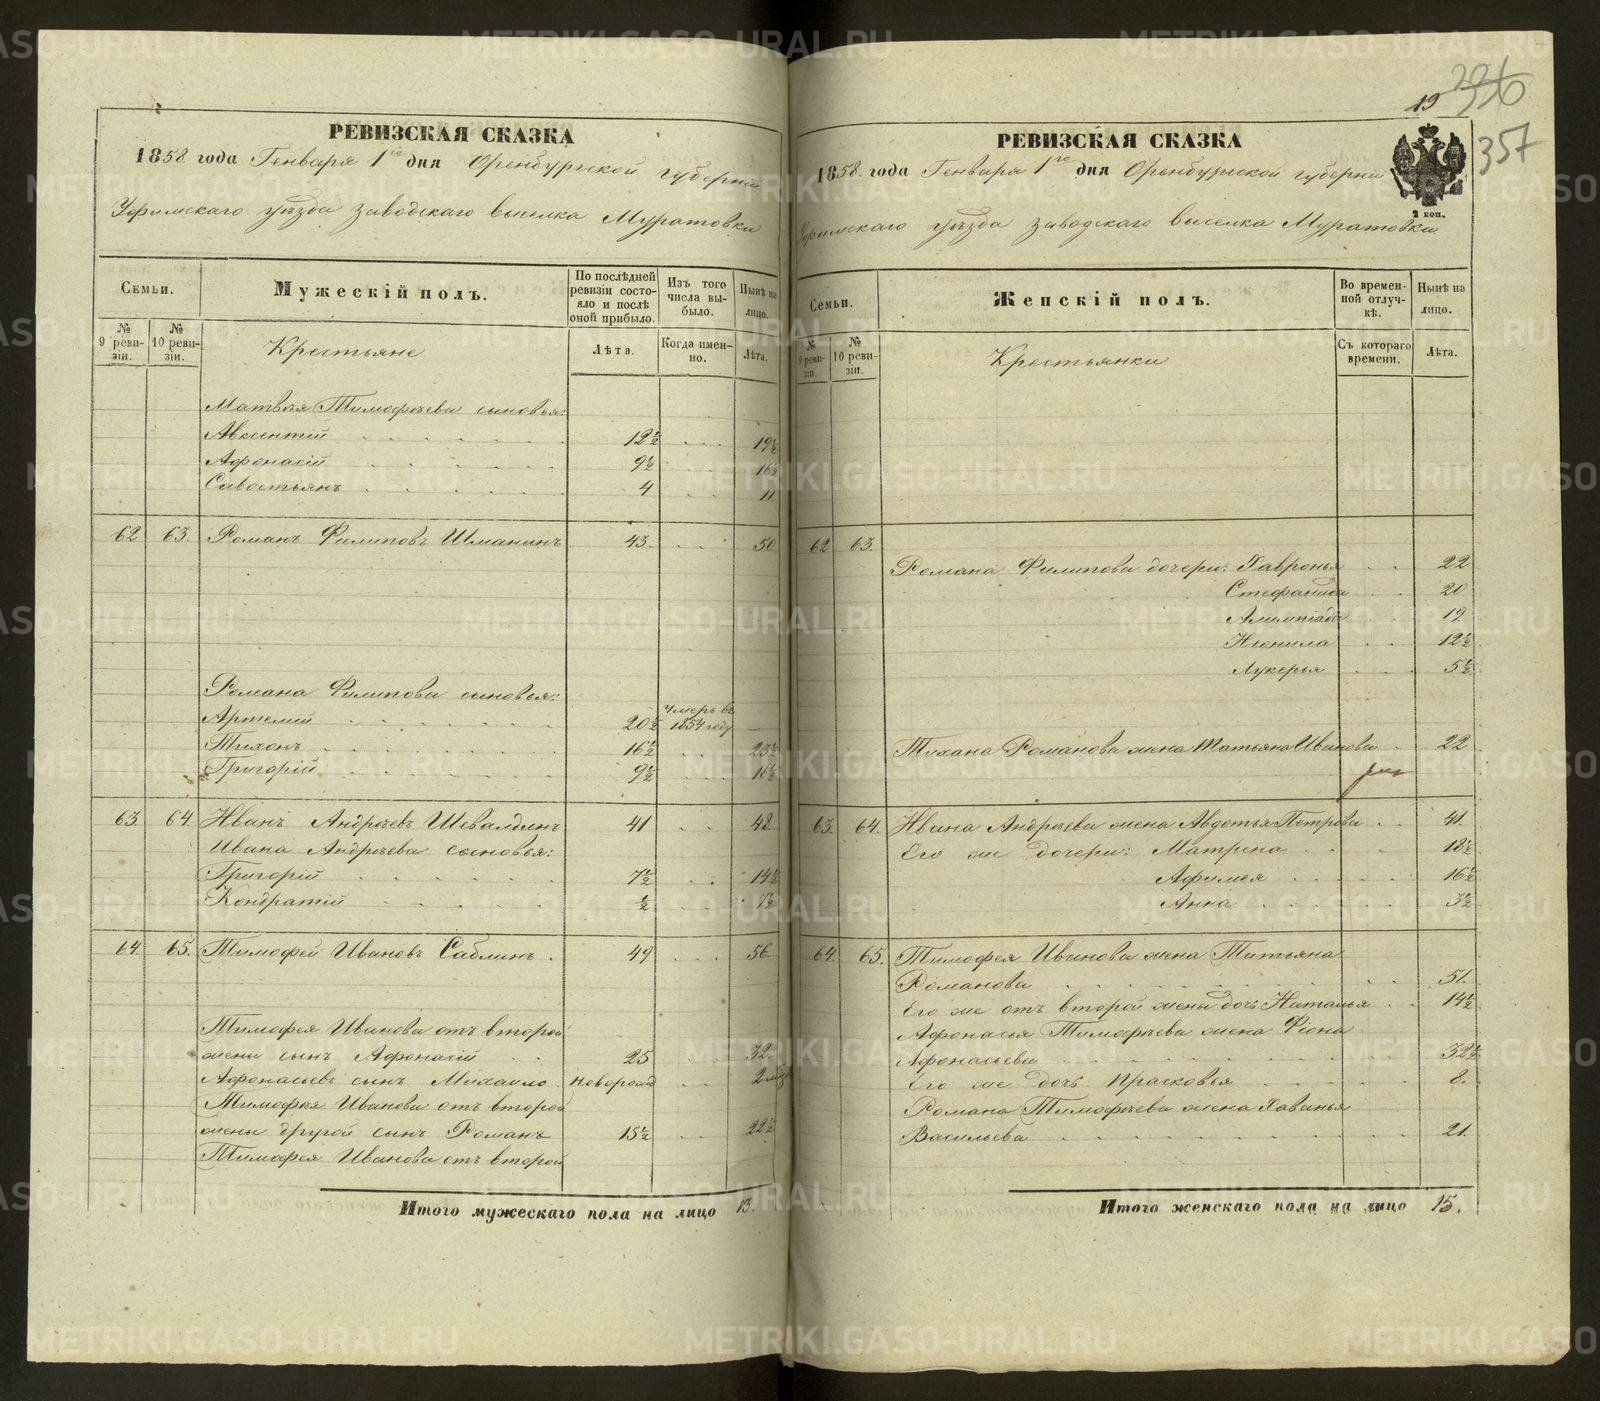 РЕВИЗСКАЯ СКАЗКА
1858 года Генваря 1го дня Оренбургской губерніи
Уфимскаго уѣзда заводскаго выселка Муратовки
Семьи.
Мужескій полъ.
По послѣдней ревизіи состояло и послѣ оной прибыло.
Изъ того числа выбыло.
Нынѣ на лицо.
№ 9 ревизіи.
№ 10 ревизіи.
Крестьяне
Лѣта.
Когда именно.
Лѣта.
Матвѣя Тимофѣева сыновья:
Авксентій 12½ 19½
Афонасій 9½ 16½
Савостьянъ 4 11
62 63. Романъ Филиповъ Шманинъ 43. 50
Романа Филипова сыновья:
Артемій 20½ умеръ въ 1854 году —
Тихонъ 16½ 23½
Григорій 9½ 16½
63. 64. Иванъ Андреевъ Шевалдинъ 41 48.
Ивана Андреева сыновья:
Григорій 7½ 14½
Кондратій ½ 7½
64. 65. Тимофей Ивановъ Саблинъ. 49 56.
Тимофея Иванова отъ второй
жены сынъ Афонасій 25 32.
Афонасьевъ сынъ Михайло новорожд 2 мѣс
Тимофея Иванова отъ второй
жены другой сынъ Романъ 15½ 22½
Тимофея Иванова отъ второй
Итого мужескаго пола на лицо 13.
19 336
357
РЕВИЗСКАЯ СКАЗКА
1858. года Генваря 1го дня Оренбургской губерніи
2 коп.
Уфимскаго уѣзда заводскаго выселка Муратовки
Семьи.
Женскій полъ.
Во временной отлучкѣ.
Нынѣ на лицо.
№ 9 ревизіи.
№ 10 ревизіи.
Крестьянки
Съ котораго времени.
Лѣта.
62 63.
Романа Филипова дочери: Хавронья 22
Стефанида 20
Алимпіада 19
Неонила 12½
Лукерья 5½
Тихана Романова жена Татьяна Иванова 22
63. 64. Ивана Андреева жена Авдотья Петрова 41.
Его же дочери: Матрена 18½
Афимья 16½
Анна 3½
64. 65. Тимофея Иванова жена Татьяна
Романова 51.
Его же отъ второй жены дочь Наталья 14½
Афонасья Тимофѣева жена Фіона
Афонасьева 32½
Его же дочь Прасковья 8.
Романа Тимофѣева жена Хаванья
Васильева 21.
Итого женскаго пола на лицо 15.
METRIKI.GASO-URAL.RU